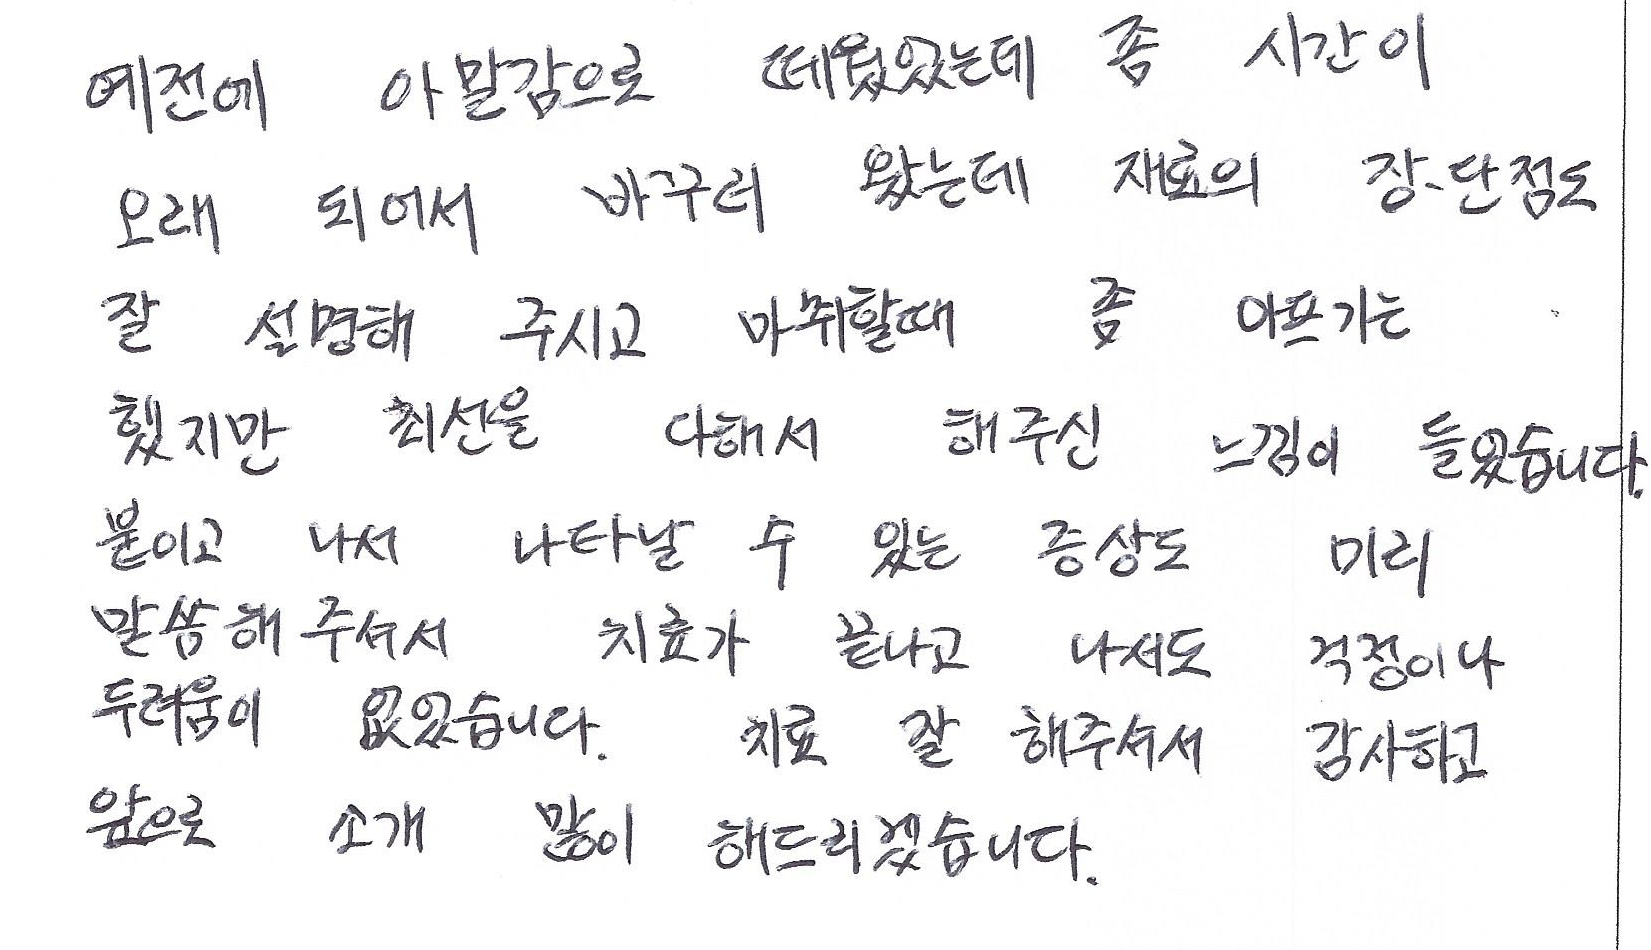 예전에 아말감으로 떼웠었는데 좀 시간이
오래 되어서 바꾸러 왔는데 재료의 장·단점도
잘 설명해 주시고 마취할때 좀 아프기는
했지만 최선을 다해서 해주신 느낌이 들었습니다.
붙이고 나서 나타날 수 있는 증상도 미리
말씀해 주셔서 치료가 끝나고 나서도 걱정이나
두려움이 없었습니다. 치료 잘 해주셔서 감사하고
앞으로 소개 많이 해드리겠습니다.